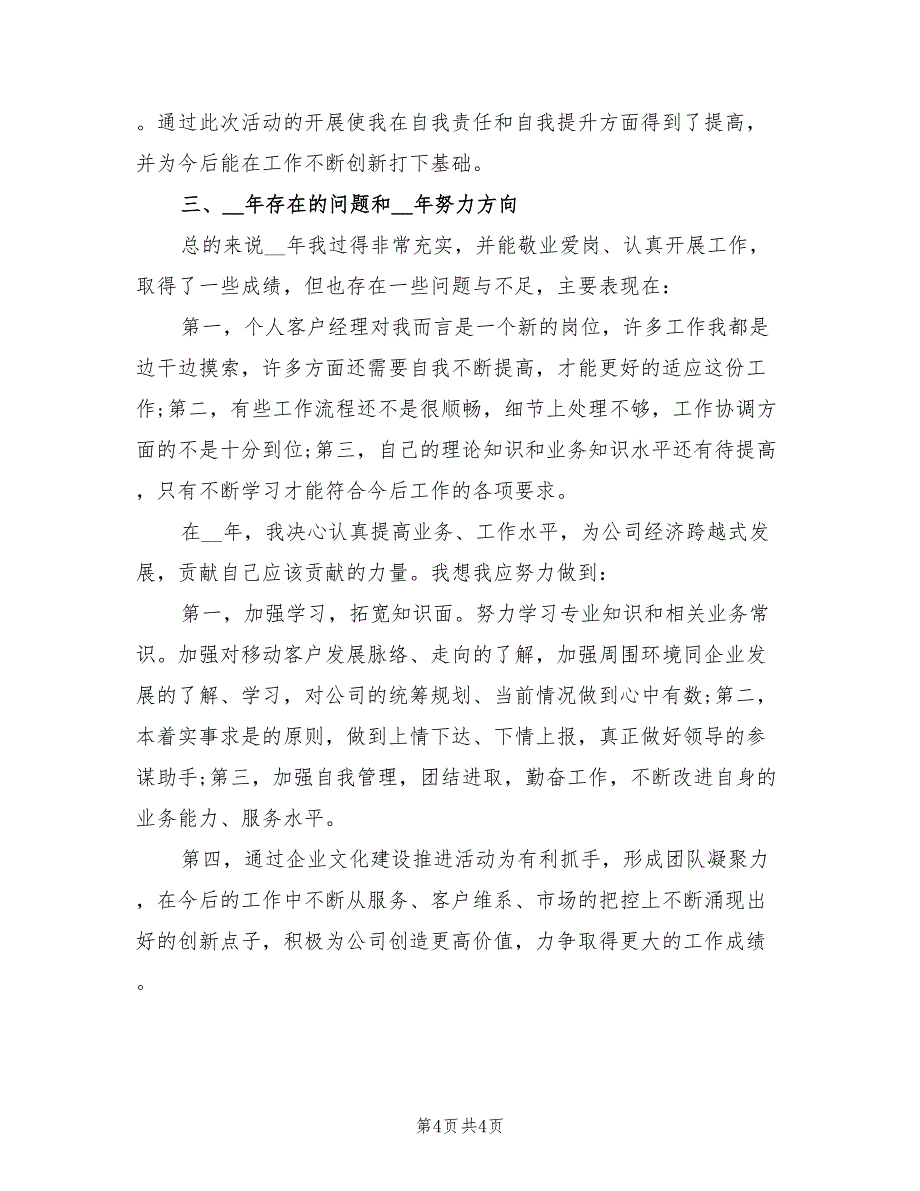 。通过此次活动的开展使我在自我责任和自我提升方面得到了提高，
并为今后能在工作不断创新打下基础。
三、__年存在的问题和__年努力方向
总的来说__年我过得非常充实，并能敬业爱岗、认真开展工作，
取得了一些成绩，但也存在一些问题与不足，主要表现在：
第一，个人客户经理对我而言是一个新的岗位，许多工作我都是
边干边摸索，许多方面还需要自我不断提高，才能更好的适应这份工
作;第二，有些工作流程还不是很顺畅，细节上处理不够，工作协调方
面的不是十分到位;第三，自己的理论知识和业务知识水平还有待提高
，只有不断学习才能符合今后工作的各项要求。
在__年，我决心认真提高业务、工作水平，为公司经济跨越式发
展，贡献自己应该贡献的力量。我想我应努力做到：
第一，加强学习，拓宽知识面。努力学习专业知识和相关业务常
识。加强对移动客户发展脉络、走向的了解，加强周围环境同企业发
展的了解、学习，对公司的统筹规划、当前情况做到心中有数;第二，
本着实事求是的原则，做到上情下达、下情上报，真正做好领导的参
谋助手;第三，加强自我管理，团结进取，勤奋工作，不断改进自身的
业务能力、服务水平。
第四，通过企业文化建设推进活动为有利抓手，形成团队凝聚力
，在今后的工作中不断从服务、客户维系、市场的把控上不断涌现出
好的创新点子，积极为公司创造更高价值，力争取得更大的工作成绩
。
第4页共4页